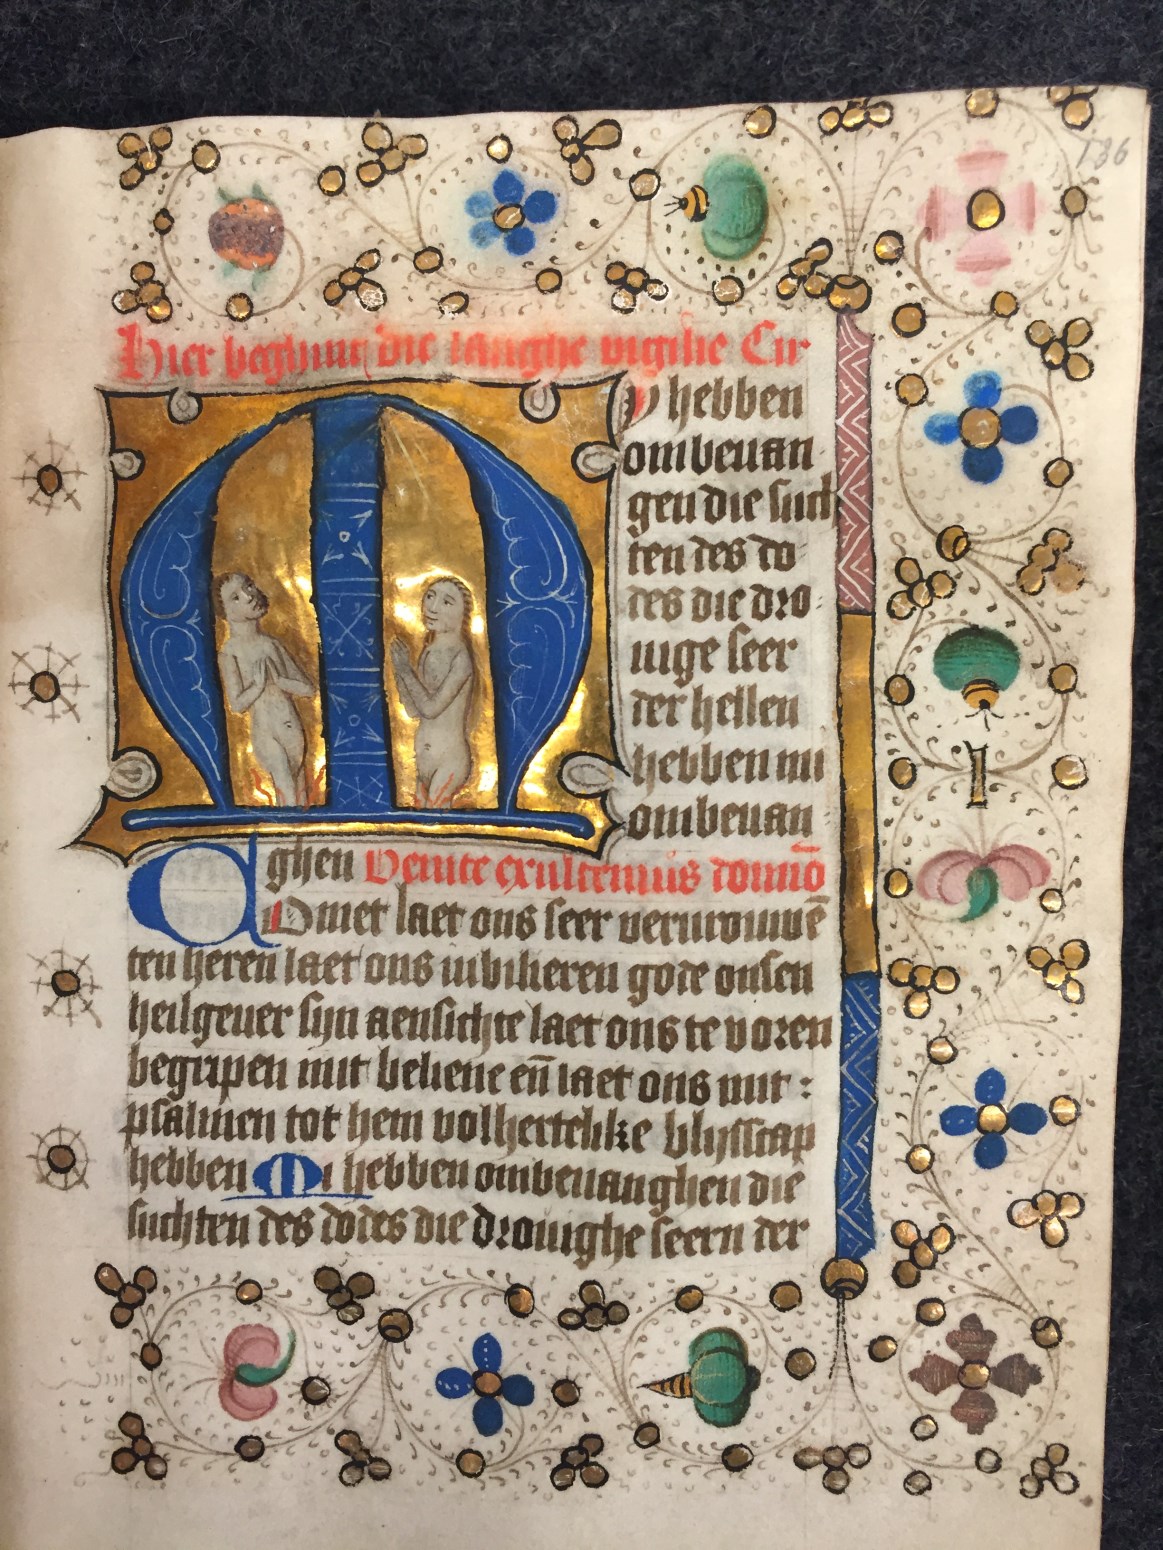 136
Hier beghint die langhe vigilie Cir
My hebben
ombeuan
gen die such
ten des do-
des die dro-
uige seer
der hellen
hebben mi
ombeuan-
ghen Venite exultemus domino
Comet laet ons seer vervrouwē
ten heren laet ons iubilieren gode onsen
heilgeuer sijn aensichte laet ons te voren
begripen mit beliene en̄ laet ons mit :
psalmen tot hem volhertelike blijsscap
hebben Mi hebben ombeuaughen die
suchten des dodes die drouighe seern der